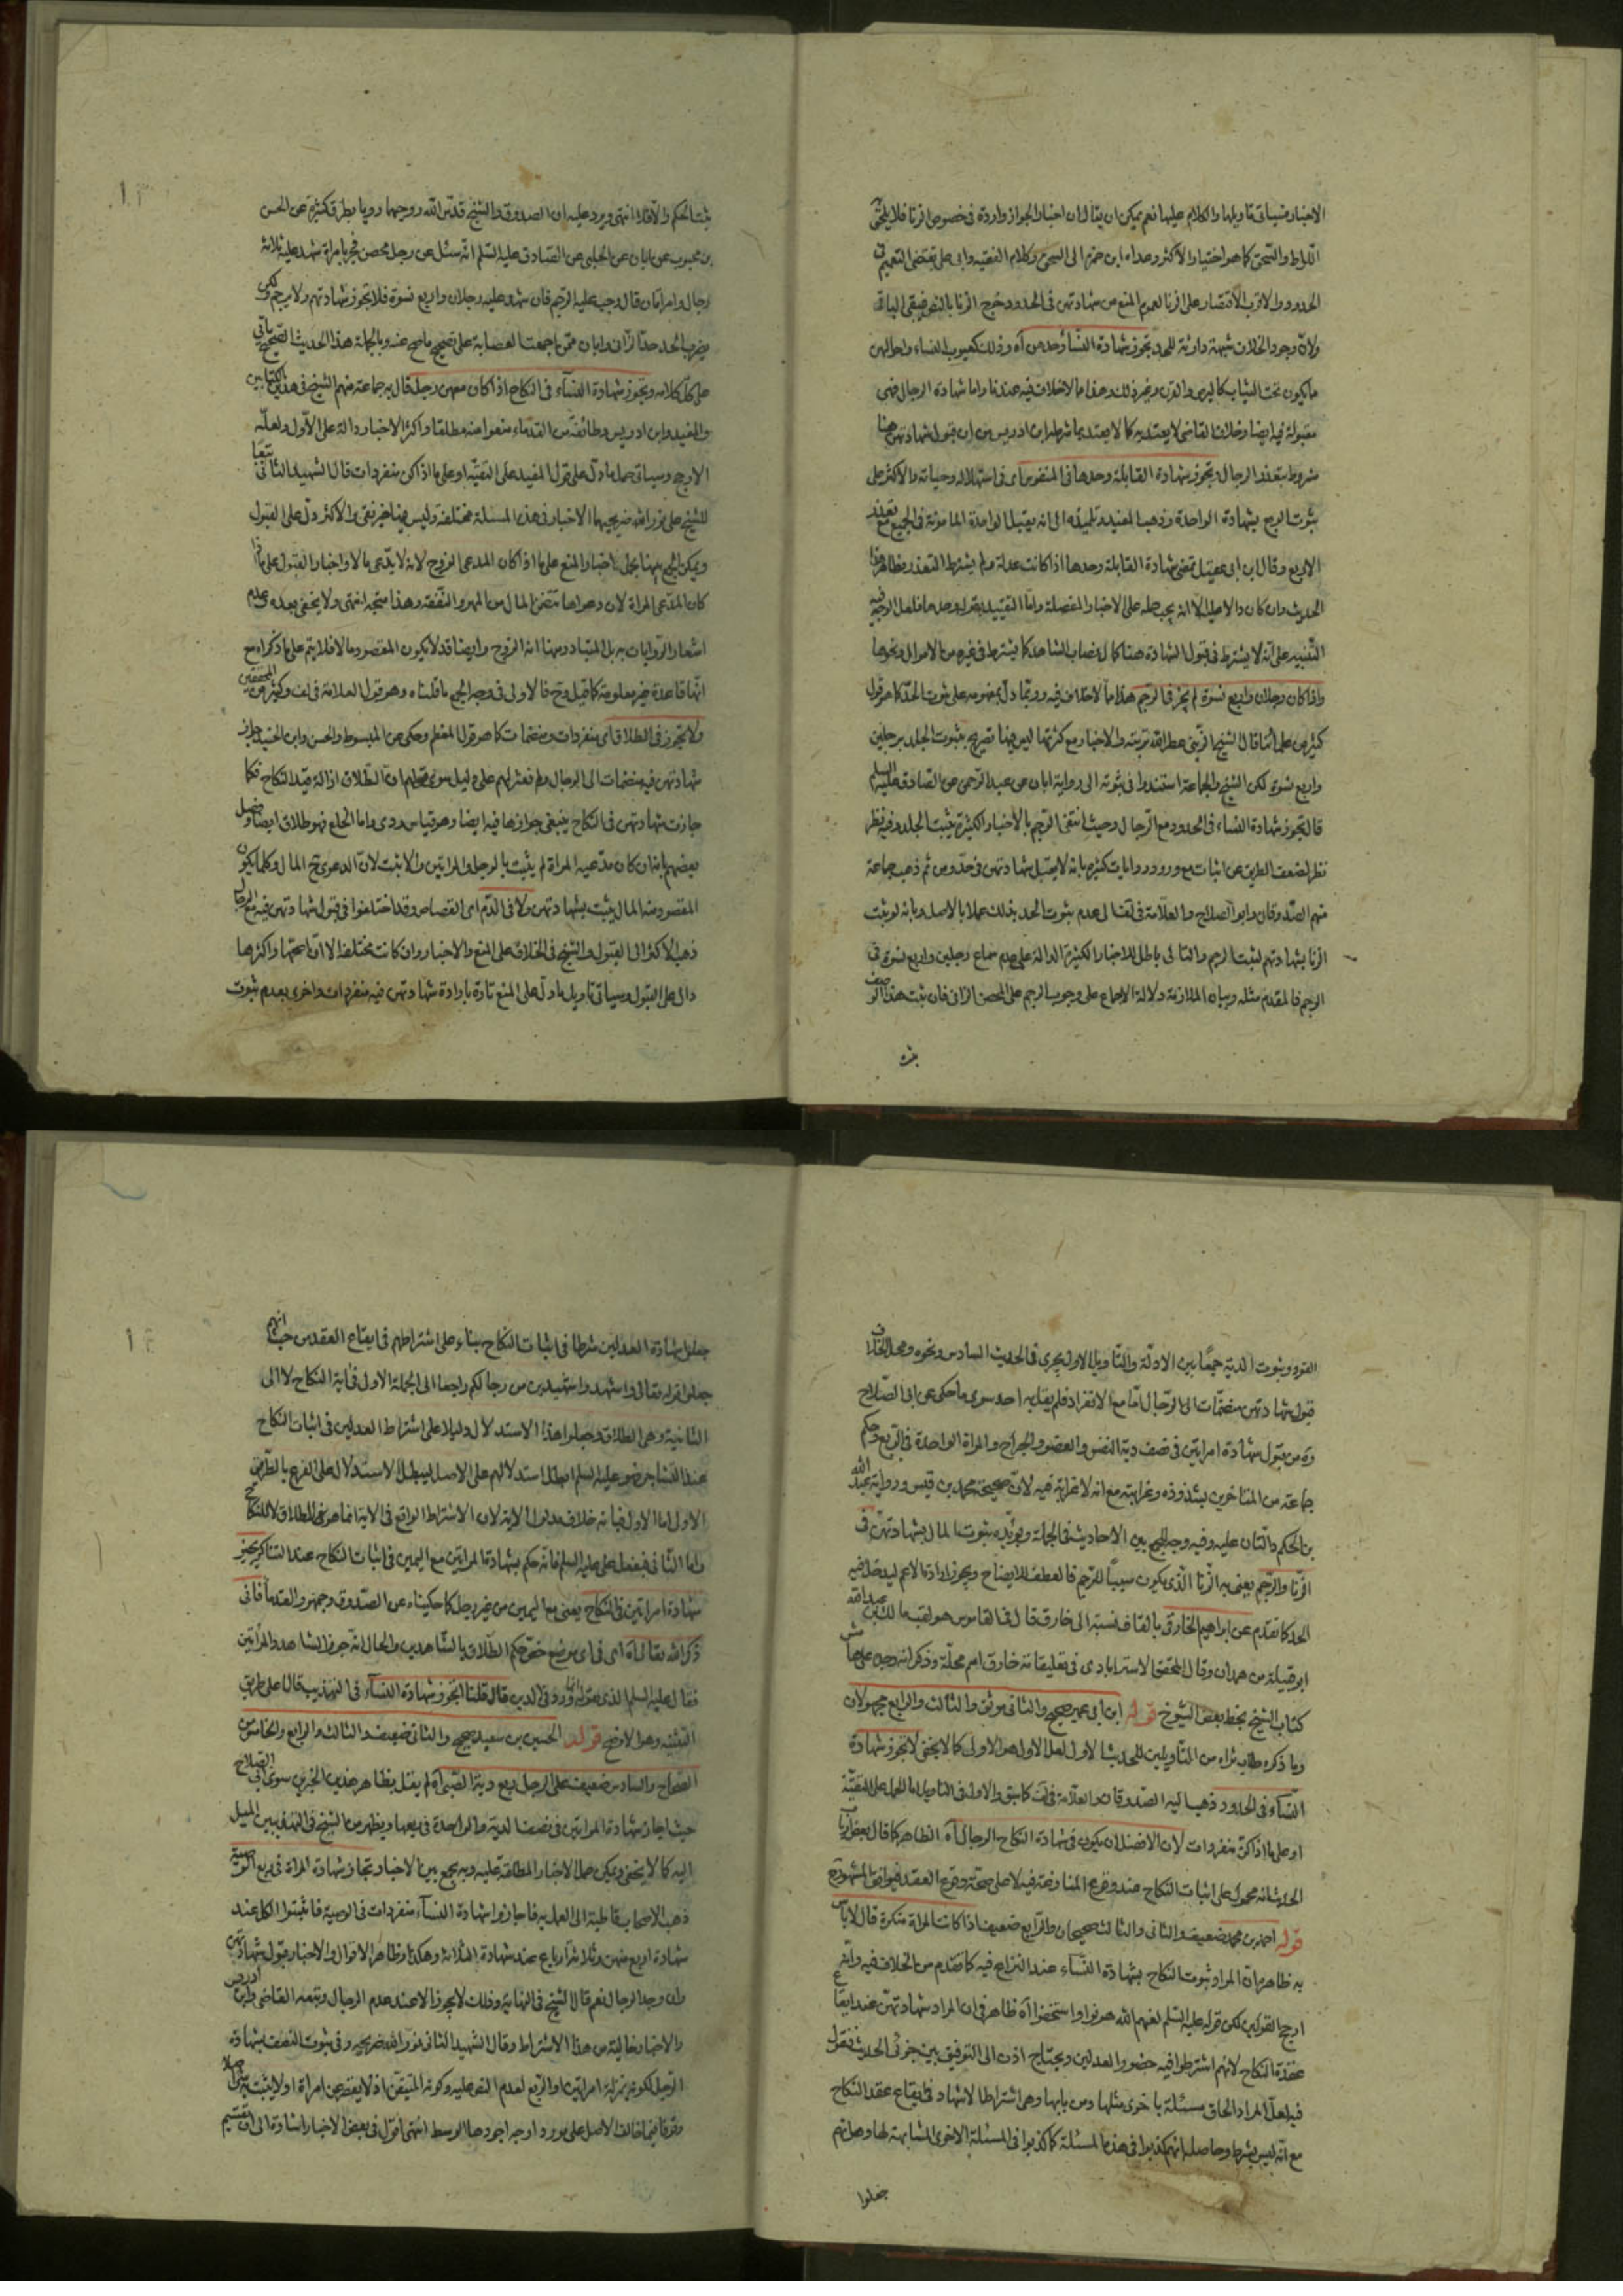 الاخبار وسياتي تاويلها والكلام عليها نعم يمكن ان يقال ان اخبار الجواز واردة في خصوص الزنا فلا يلحق
اللواط والسحق كما هو اختيار الاكثر وعداه ابن حمزة الى السحق وكلام الفقيه وابي علي يقتضي التعميم في
الحدود والاقرب الاقتصار على الزنا لعموم المنع من شهادتهن في الحدود وخرج الزنا بالنص فيبقى الباقي
ولان وجود الخلاف شبهة دارئة للحد تجوز شهادة النساء وحدهن آه وذلك كعيوب النساء واحوالهن
ما يكون تحت الثياب كالبرص والقرن وغير ذلك وهذا ما لا خلاف فيه عندنا واما شهادة الرجال فهي
مقبولة فيه ايضا وخلاف القاضي لا يعتد به كما لا يعتد بما شرطه ابن ادريس من ان قبول شهادتهن هنا
مشروط بتعذر الرجال وتجوز شهادة القابلة وحدها في المنفوس اى في استهلاله وحياته والاكثر على
ثبوت الربع بشهادة الواحدة وذهب المفيد وتلميذه الى انه يقبل الواحدة المامونة في الجميع مع تعذر
الاربع وقال ابن ابي عقيل تمضي شهادة القابلة وحدها اذا كانت عدلة ولم يشترط التعذر وظاهر هذا
الحديث وان كان دالا عليه الا انه يجب حمله على الاخبار المفصلة واما التقييد بقوله وحدها فلعل الوجه فيه
التنبيه على انه لا يشترط في قبول الشهادة هنا كمال نصاب الشاهد كما يشترط في غيره من الاموال ونحوها
واذا كان رجلان واربع نسوة لم يجز في الرجم هذا ما لا خلاف فيه وربما دل بمفهومه على ثبوت الحد كما هو قول
كثير من علمائنا قال الشهيد الثاني عطر الله تربته والاخبار مع كثرتها ليس فيها تصريح بثبوت الجلد برجلين
واربع نسوة لكن الشيخ والجماعة استندوا في ثبوته الى رواية ابان عن عبد الرحمن عن الصادق عليه السلم
قال تجوز شهادة النساء في الحدود مع الرجال وحيث انتفى الرجم بالاخبار الكثيرة يثبت الجلد وفيه نظر
نظرا لضعف الطريق عن اثبات مع ورود روايات كثيرة بانه لا يقبل شهادتهن في حد ومن ثم ذهب جماعة
منهم الصدوقان وابو الصلاح والعلامة في لف الى عدم ثبوت الحد بذلك عملا بالاصل وبانه لو ثبت
الزنا بشهادتهم لثبت الرجم والتالي باطل للاخبار الكثيرة الدالة على عدم سماع رجلين واربع نسوة في
الرجم فالمقدم مثله وبيان الملازمة دلالة الاجماع على وجوب الرجم على المحصن الزاني فان ثبت هذا الوصف
يثبت الحكم والا فلا انتهى ويرد عليه ان الصدوق والشيخ قدس الله روحهما رويا بطرق كثيرة عن الحسن
بن محبوب عن ابان عن الحلبي عن الصادق عليه السلم انه سئل عن رجل محصن فجر بامراة فشهد عليه ثلاثة
رجال وامراتان قال وجب عليه الرجم فان شهد عليه رجلان واربع نسوة فلا تجوز شهادتهم ولا يرجم ولكن
يضرب الحد حد الزاني وابان ممن اجمعت العصابة على تصحيح ما صح عنه وبالجملة هذا الحديث الصحيح ياتي
على كل كلامه وتجوز شهادة النساء في النكاح اذا كان معهن رجل قال به جماعة منهم الشيخ في هذين الكتابين
والمفيد وابن ادريس وطائفة من القدماء منعوا منه مطلقا واكثر الاخبار دالة على الاول ولعله
الاوجه وسياتي حمل ما دل على قول المفيد على التقية او على ما اذا كن منفردات قال الشهيد الثاني تبعا
للشيخ علي نور الله ضريحهما الاخبار في هذه المسئلة مختلفة وليس فيها خبر نقي والاكثر دل على القبول
ويمكن الجمع بينها بحمل اخبار المنع على ما اذا كان المدعى الزوج لانه لا يدعى مالا واخبار القبول على ما اذا
كان المدعى المراة لان دعواها تتضمن المال من المهر والنفقة وهذا متجه انتهى ولا يخفى بعده وعدم
اشعار الروايات به بل المتبادر منها انه الزوج وايضا قد لا يكون المقصود مالا فلا يتم على ما ذكراه مع
انها قاعدة غير معلومة كما قيل وح فالاولى في وجه الجمع ما قلناه وهو قول العلامة في لف وكثير من المحققين
ولا تجوز في الطلاق اى منفردات ومنضمات كما هو قول المعظم وحكى عن المبسوط والحسن وابن الجنيد جواز
شهادتهن فيه منضمات الى الرجال ولم نعثر لهم على دليل سوى قولهم ان الطلاق ازالة قيد النكاح فكما
جازت شهادتهن في النكاح ينبغي جوازها فيه ايضا وهو قياس ردى واما الخلع فهو طلاق ايضا وفصل
بعضهم بانه ان كان مدعيه المراة لم يثبت بالرجل والمراتين والا ثبت لان الدعوى ح المال وكلما يكون
المقصود منه المال يثبت بشهادتهن ولا في الدم اى القصاص وقد اختلفوا في قبول شهادتهن فيه مع الرجال
ذهب الاكثر الى القبول والشيخ في الخلاف على المنع والاخبار وان كانت مختلفة الا ان اصحها واكثرها
دال على القبول وسياتي تاويل ما دل على المنع تارة بارادة شهادتهن فيه منفردات واخرى بعدم ثبوت
القود وثبوت الدية جمعا بين الادلة والتاويل الاول يجرى في الحديث السادس ونحوه ومحل الخلاف
قبول شهادتهن منضمات الى الرجال اما مع الانفراد فلم يقل به احد سوى ما حكى عن ابي الصلاح
وه من قبول شهادة امراتين في نصف دية النفس والعضو والجراح والمراة الواحدة في الربع وحكم
جماعة من المتاخرين بشذوذه وغرابته مع انه لا غرابة فيه لان صحيحة محمد بن قيس ورواية عبد الله
بن الحكم دالتان عليه وفيه وجه للجمع بين الاحاديث في الجملة ويؤيده ثبوت المال بشهادتهن في
الزنا والرجم يعنى به الزنا الذى يكون سببا للرجم فالعطف للايضاح ويجوز ارادة الاعم ليدخل فيه
الحد كما تقدم عن ابراهيم الخارقي بالقاف نسبة الى خارق قال في القاموس هو لقب مالك بن عبد الله
ابو قبيلة من همدان وقال المحقق الاسترابادى في تعليقاته خارق اسم محلة وذكر انه وجد على هامش
كتاب الشيخ بخط بعض الشيوخ قوله ابن ابي عمير صحيح والثاني موثق والثالث والرابع مجهولان
وما ذكره طاب ثراه من التاويلين للحديث الاول لعل الاول هو الاولى كما لا يخفى لا تجوز شهادة
النساء في الحدود ذهب اليه الصدوقان والعلامة في لف كما سبق والاولى في التاويل اما الحمل على التقية
او على ما اذا كن منفردات لان الافضل ان يكون في شهادة النكاح الرجال آه الظاهر كما قال بعض ارباب
الحديث انه محمول على اثبات النكاح عند وقوع المنازعة فيه لا على صحة وقوع العقد فيوافق المشهور
قوله احمد بن محمد ضعيف والثاني والثالث صحيحان والرابع ضعيف اذا كانت المراة منكرة قال لا باس
به ظاهره ان المراد ثبوت النكاح بشهادة النساء عند النزاع فيه كما تقدم من الخلاف فيه وانه
ارجح القولين لكن قوله عليه السلم لعنهم الله هونوا واستخفوا آه ظاهر في ان المراد شهادتهن عند ايقاع
عقدة النكاح لانهم اشترطوا فيه حضور العدلين ويحتاج اذن الى التوفيق بين جزئي الحديث فنقول
فيه لعل المراد الحاق مسئلة باخرى مثلها ومن بابها وهي اشتراط الاشهاد في ايقاع عقد النكاح
مع انه ليس بشرط وحاصله انهم كذبوا في هذه المسئلة كما كذبوا في المسئلة الاخرى المشابهة لها وهي انهم
جعلوا
جعلوا شهادة العدلين شرطا في اثبات النكاح بناء على اشتراطهم في ايقاع العقد من حيث انهم
جعلوا قوله تعالى واستشهدوا شهيدين من رجالكم راجعا الى الجملة الاولى في آية النكاح لا الى
الثانية وهي الطلاق وجعلوا هذا الاستدلال دليلا على اشتراط العدلين في اثبات النكاح
عند التشاجر فهو عليه السلم ابطل استدلالهم على الاصل ليبطل الاستدلال على الفرع بالطريق
الاولى اما الاول فبانه خلاف مدلول الاية لان الاشتراط الواقع في الاية انما هو في الطلاق لا للنكاح
واما الثاني فبفعل علي عليه السلم فانه حكم بشهادة المراتين مع اليمين في اثبات النكاح عند التناكر يجيز
شهادة امراتين في النكاح يعنى مع اليمين من غير رجل كما حكيناه عن الصدوق وجمهور القدماء فانى
ذكر الله تعالى آه اى في اى موضع خص حكم الطلاق بالشاهدين والحال انه جوز الشاهد والمراتين
فقال عليه السلم الذى هو ... ورد في الدين قال قلنا اتجوز شهادة النساء في التهذيب قال على طريق
التثنية وهو الاوضح قوله الحسين بن سعيد صحيح والثاني ضعيف والثالث والرابع والخامس
الصحاح والسادس ضعيف على الرجل ربع دية الصبي آه لم يقل بظاهر هذين الخبرين سوى ابي الصلاح
حيث اجاز شهادة المراتين في نصف الدية والواحدة في ربعها ويظهر من الشيخ في التهذيبين الميل
اليه كما لا يخفى ويمكن حمل الاخبار المطلقة عليه وبه يجمع بين الاخبار تجاز شهادة المراة في ربع الوصية
ذهب الاصحاب قاطبة الى العمل به فاجازوا شهادة النساء منفردات في الوصية فاثبتوا الكل عند
شهادة اربع منهن وثلاثة ارباع عند شهادة الثلاث وهكذا وظاهر الاقوال والاخبار قبول شهادتهن
وان وجد الرجال نعم قال الشيخ في النهاية وذلك لا يجوز الا عند عدم الرجال وتبعه القاضي وابن ادريس
والاخبار خالية من هذا الاشتراط وقال الشهيد الثاني نور الله ضريحه وفي ثبوت النصف بشهادة
الرجل لكونه بمنزلة امراتين او الربع لعدم النص عليه وكونه المتيقن اذ لا يقصر عن امراة او لا يثبت به شئ اصلا
وقوفا فيما خالف الاصل على مورده اوجه اجودها الوسط انتهى اقول في بعض الاخبار اشارة الى ان تقسيم